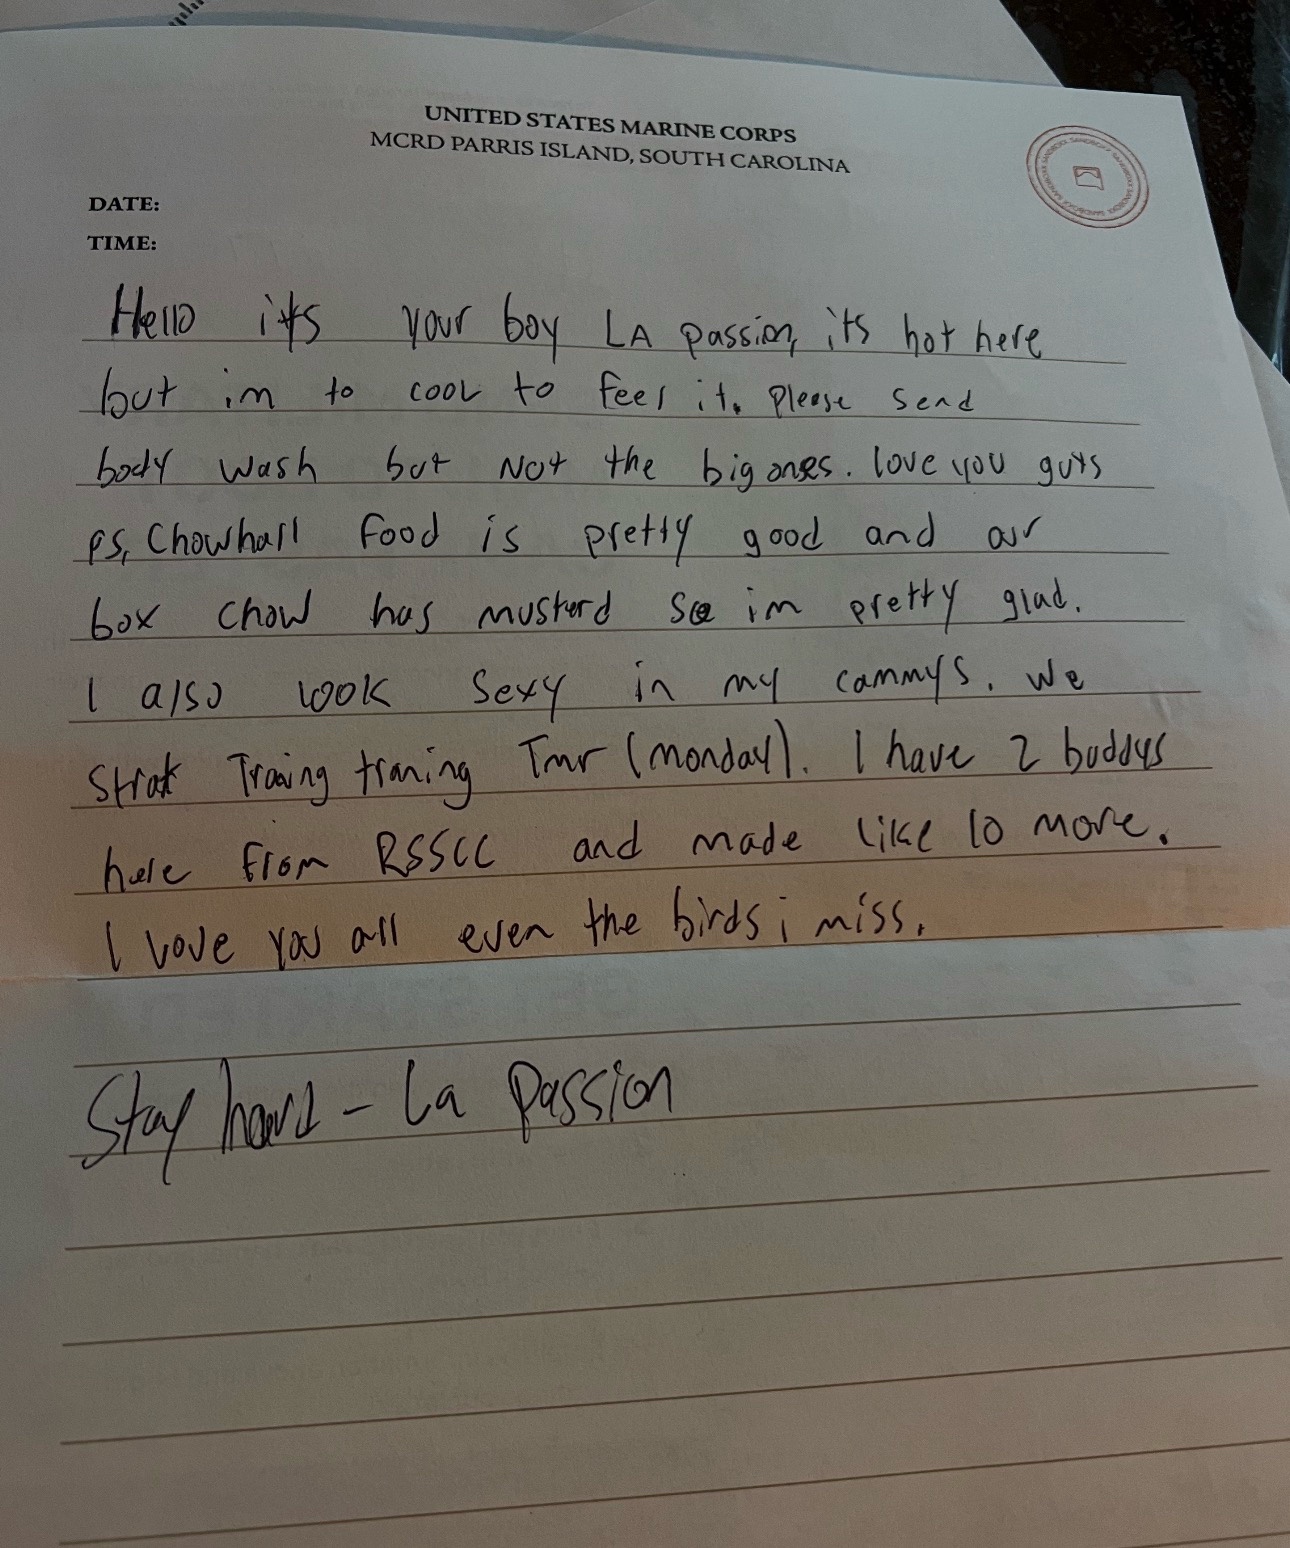 UNITED STATES MARINE CORPS
MCRD PARRIS ISLAND, SOUTH CAROLINA
DATE:
TIME:
Hello its your boy LA passion, its hot here
but im to cool to feel it. Please send
body wash but Not the big ones. love you guys
ps, Chowhall food is pretty good and our
box chow has musterd so im pretty glad.
I also look sexy in my cammys. We
strat Traing traning Tmr (monday). I have 2 buddys
here from RSSCC and made like 10 more.
I love you all even the birds i miss.
Stay hard - La Passion